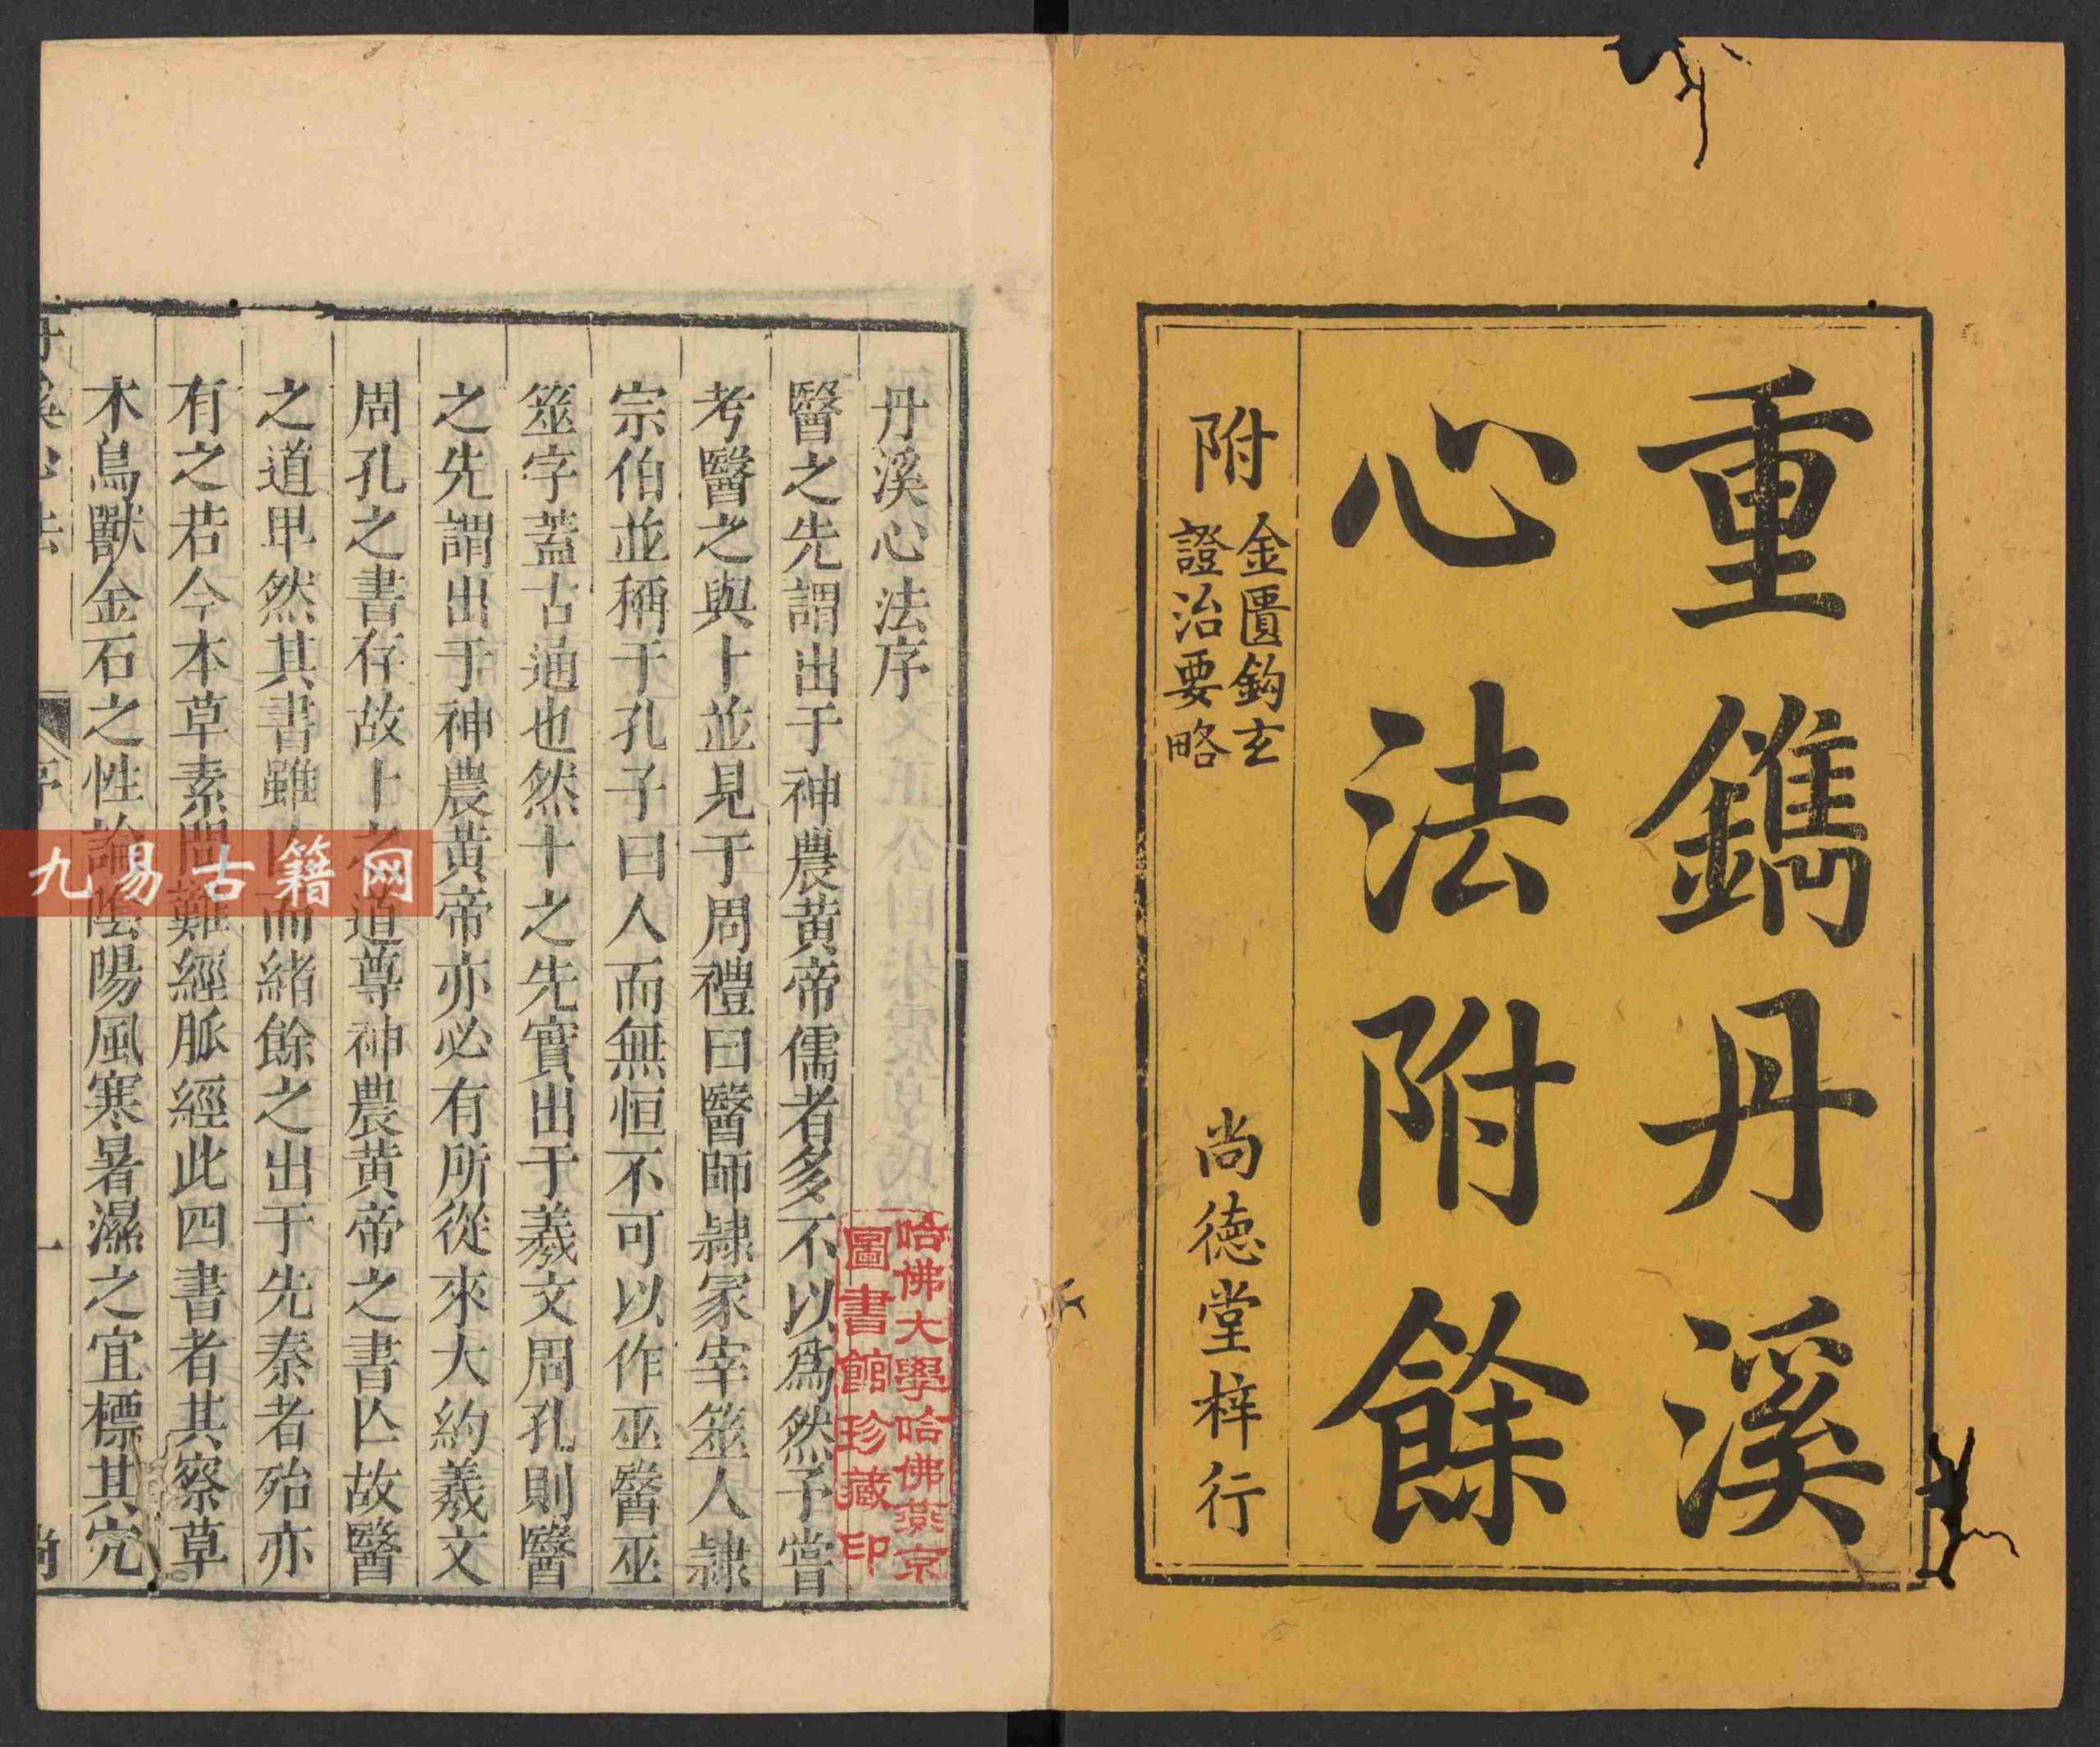 重鐫丹溪
心法附餘
附
金匱鈎玄
證治要略
尚德堂梓行
丹溪心法序
醫之先謂出于神農黃帝儒者多不以爲然予嘗
考醫之與卜並見于周禮曰醫師隷冢宰筮人隷
宗伯並稱于孔子曰人而無恒不可以作巫醫巫
筮字蓋古通也然卜之先實出于羲文周孔則醫
之先謂出于神農黃帝亦必有所從來大約羲文
周孔之書存故卜之道尊神農黃帝之書亾故醫
之道卑然其書雖亾而緒餘之出于先秦者殆亦
有之若今本草素問難經脈經此四書者其察草
木鳥獸金石之性論陰陽風寒暑濕之宜標其穴
丹溪心法
序
一
尚
哈佛大學哈佛燕京
圖書館珍藏印
九易古籍网